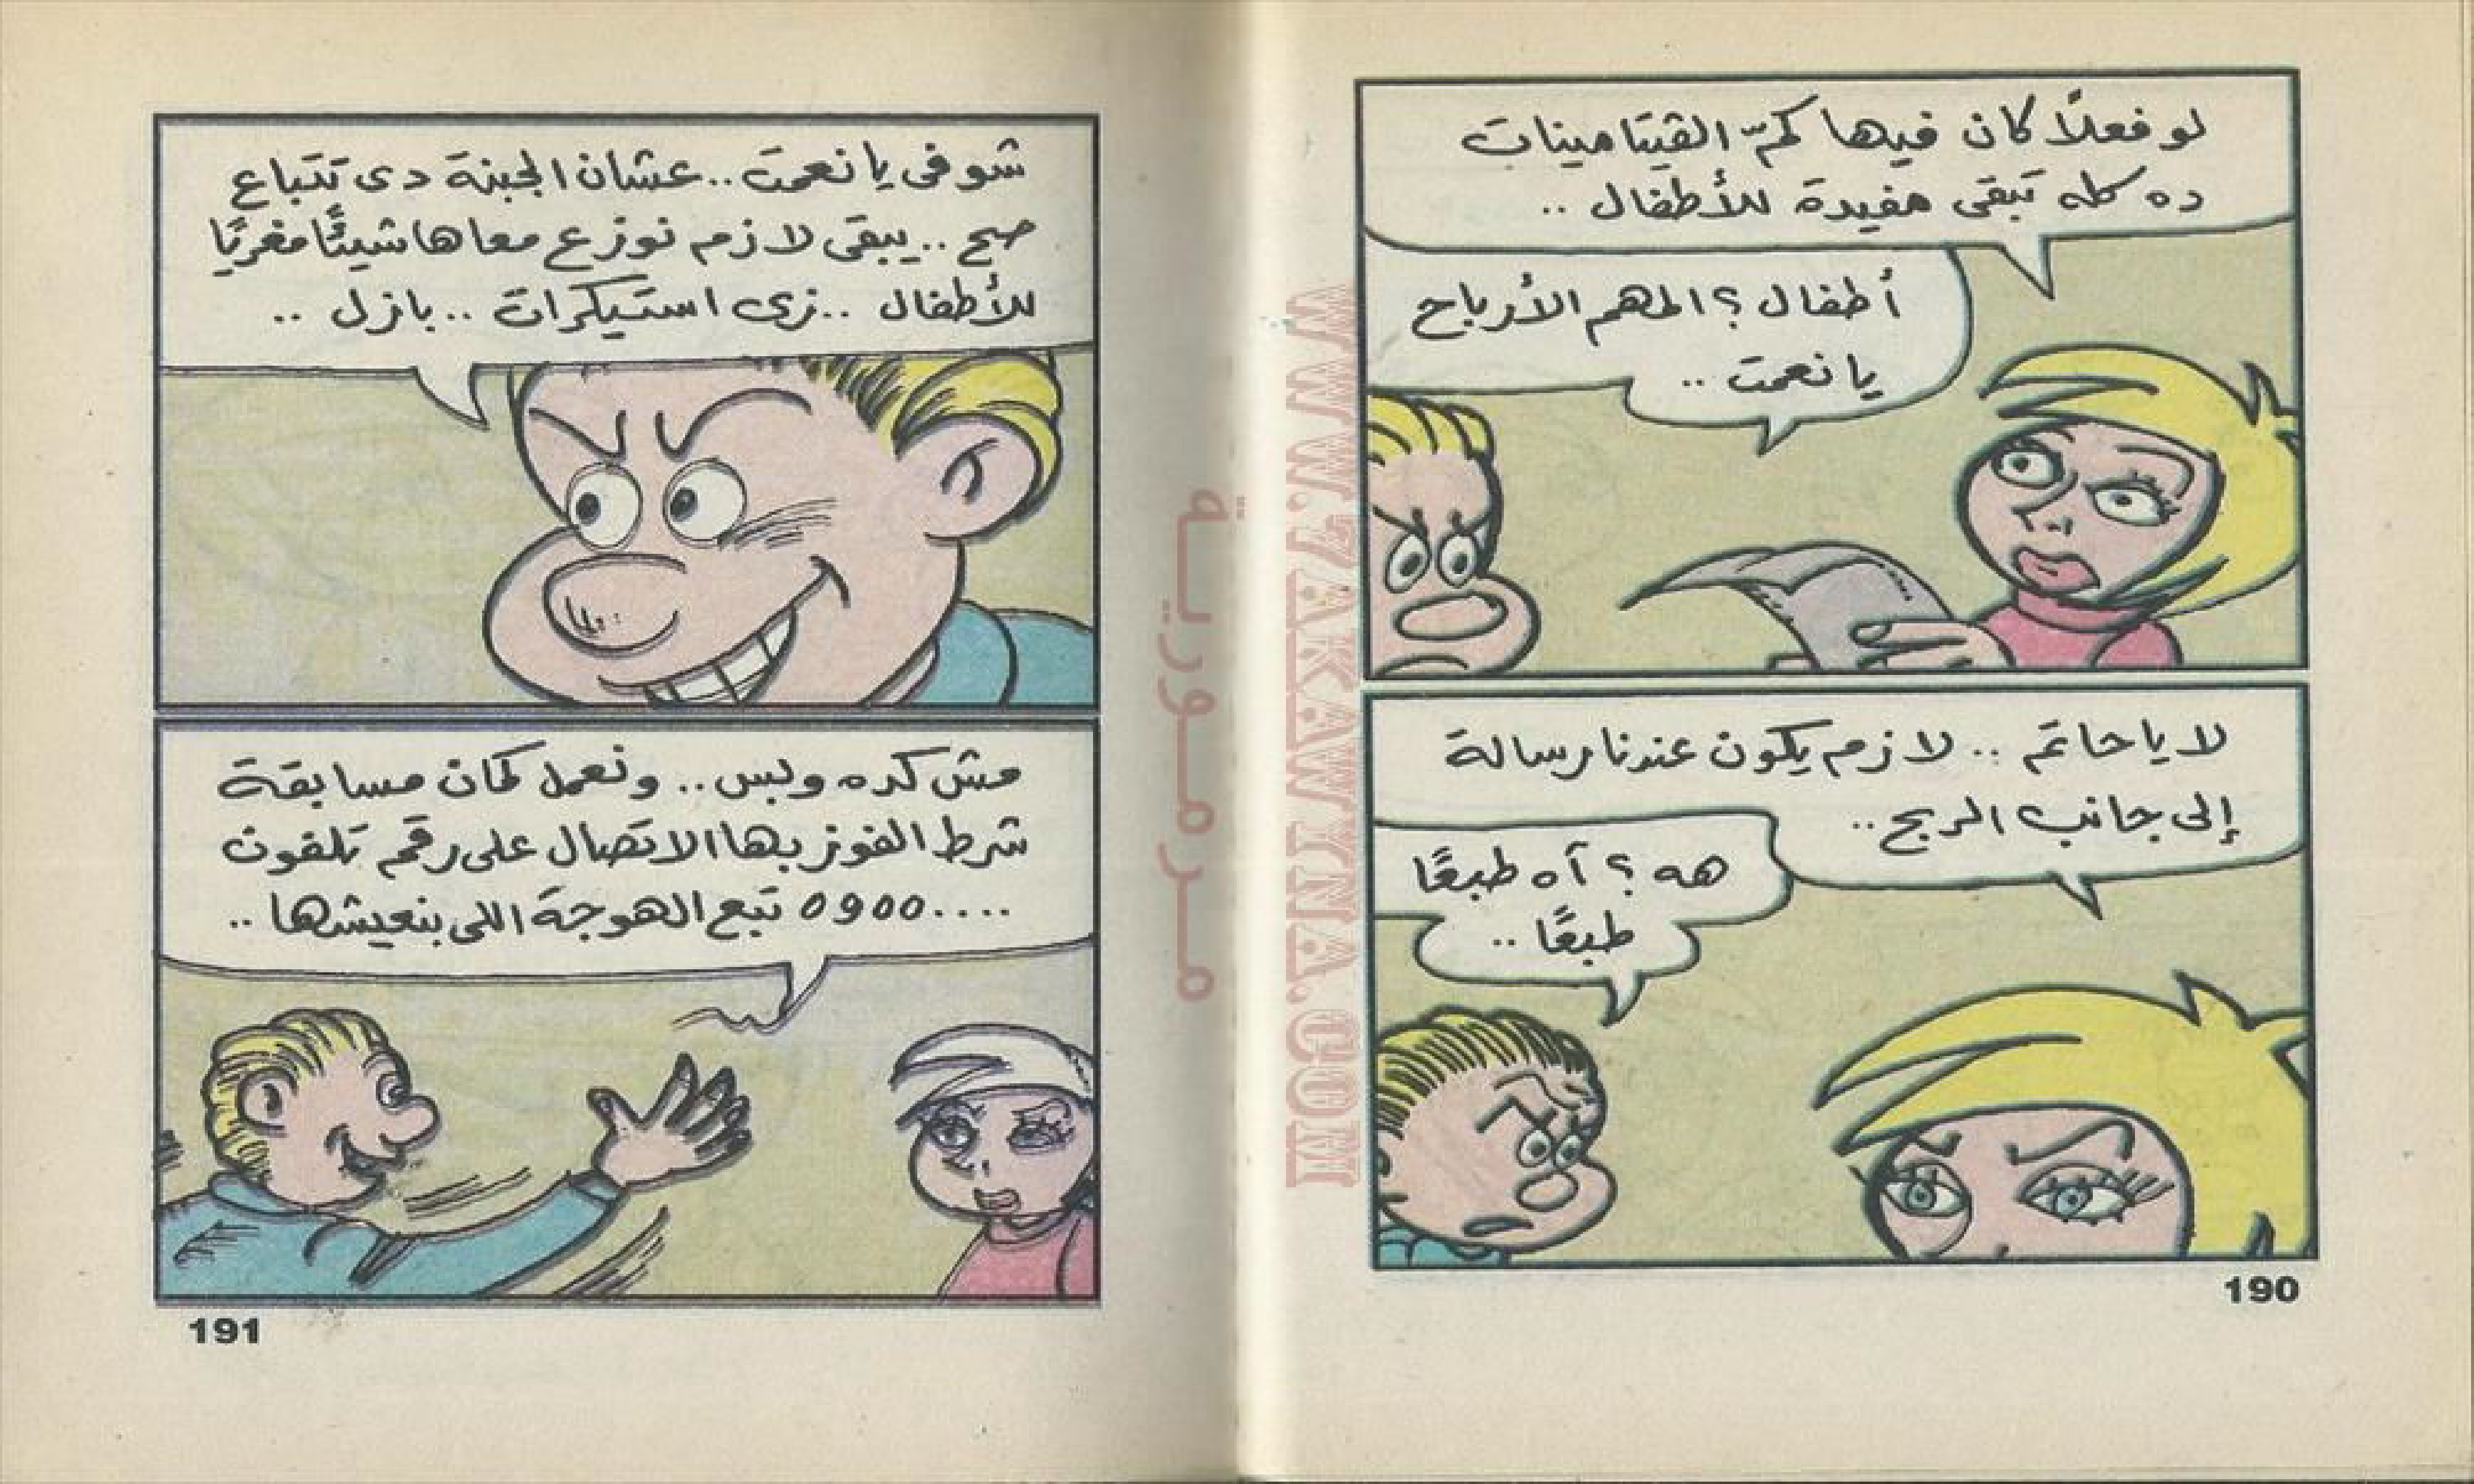 لو فعلاً كان فيها كمّ الڤيتامينات
ده كله تبقى مفيدة للأطفال ..
أطفال ؟ المهم الأرباح
يا نعمت ..
لا يا حاتم .. لازم يكون عندنا رسالة
إلى جانب الربح ..
هه ؟ آه طبعًا
طبعًا ..
190
شوفى يا نعمت .. عشان الجبنة دى تتباع
صح .. يبقى لازم نوزع معاها شيئًا مغريًا
للأطفال .. زى استيكرات .. بازل ..
مش كده وبس .. ونعمل كمان مسابقة
شرط الفوز بها الاتصال على رقم تلفون
٥٩٥٥.... تبع الهوجة اللى بنعيشها ..
191
مرمورية
WWW.7AKAWINA.COM